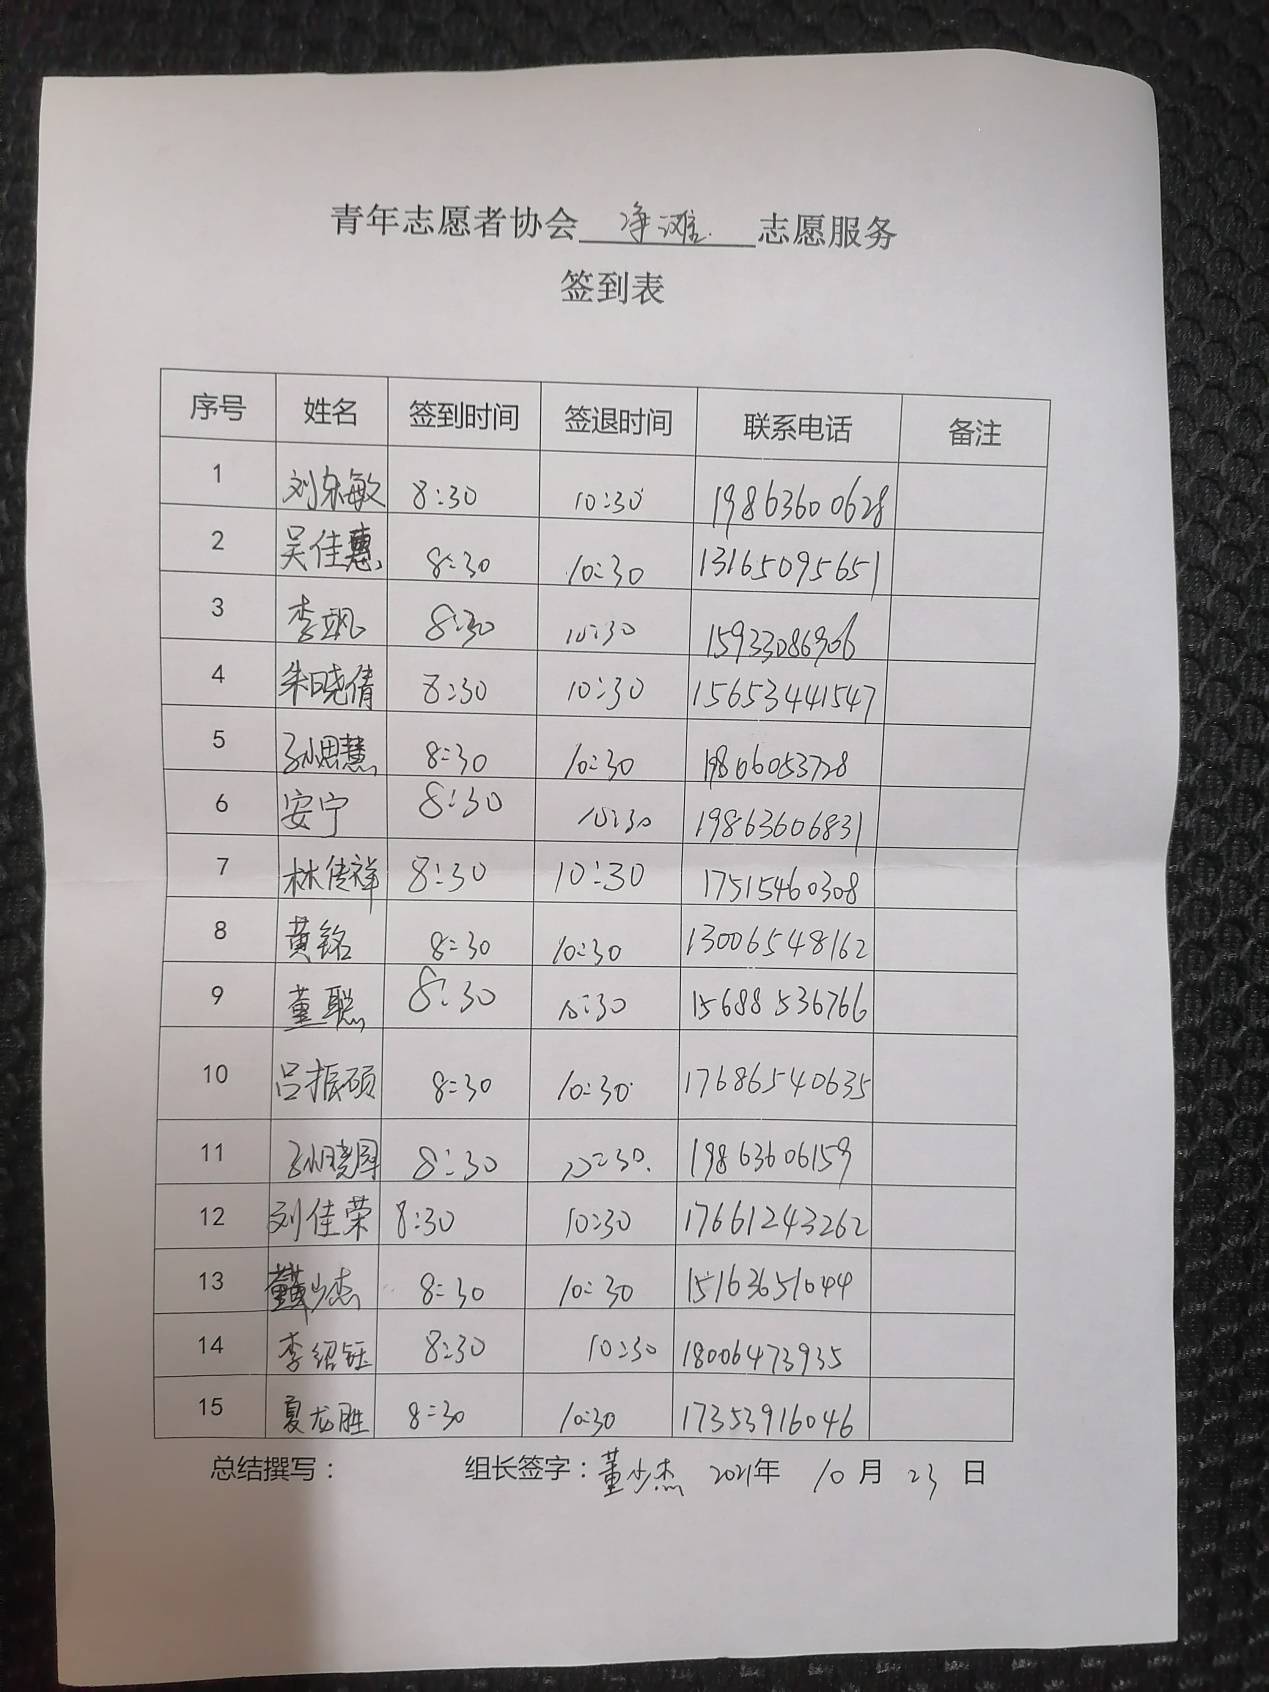 青年志愿者协会 净滩 志愿服务
签到表
序号 姓名 签到时间 签退时间 联系电话 备注
1 刘东敏 8:30 10:30 19863600628
2 吴佳惠 8:30 10:30 13165095651
3 李飒 8:30 10:30 15933086906
4 朱晓倩 8:30 10:30 15653441547
5 孙思慧 8:30 10:30 19806053728
6 安宁 8:30 10:30 19863606831
7 林传祥 8:30 10:30 17515460308
8 黄铭 8:30 10:30 13006548162
9 董聪 8:30 10:30 15688536766
10 吕振硕 8:30 10:30 17686540635
11 孙晓 8:30 10:30 19863606159
12 刘佳荣 8:30 10:30 17661243262
13 董少杰 8:30 10:30 15163651044
14 李绍钰 8:30 10:30 18006473935
15 夏龙胜 8:30 10:30 17353916046
总结撰写： 组长签字：董少杰 2021年 10月 23日